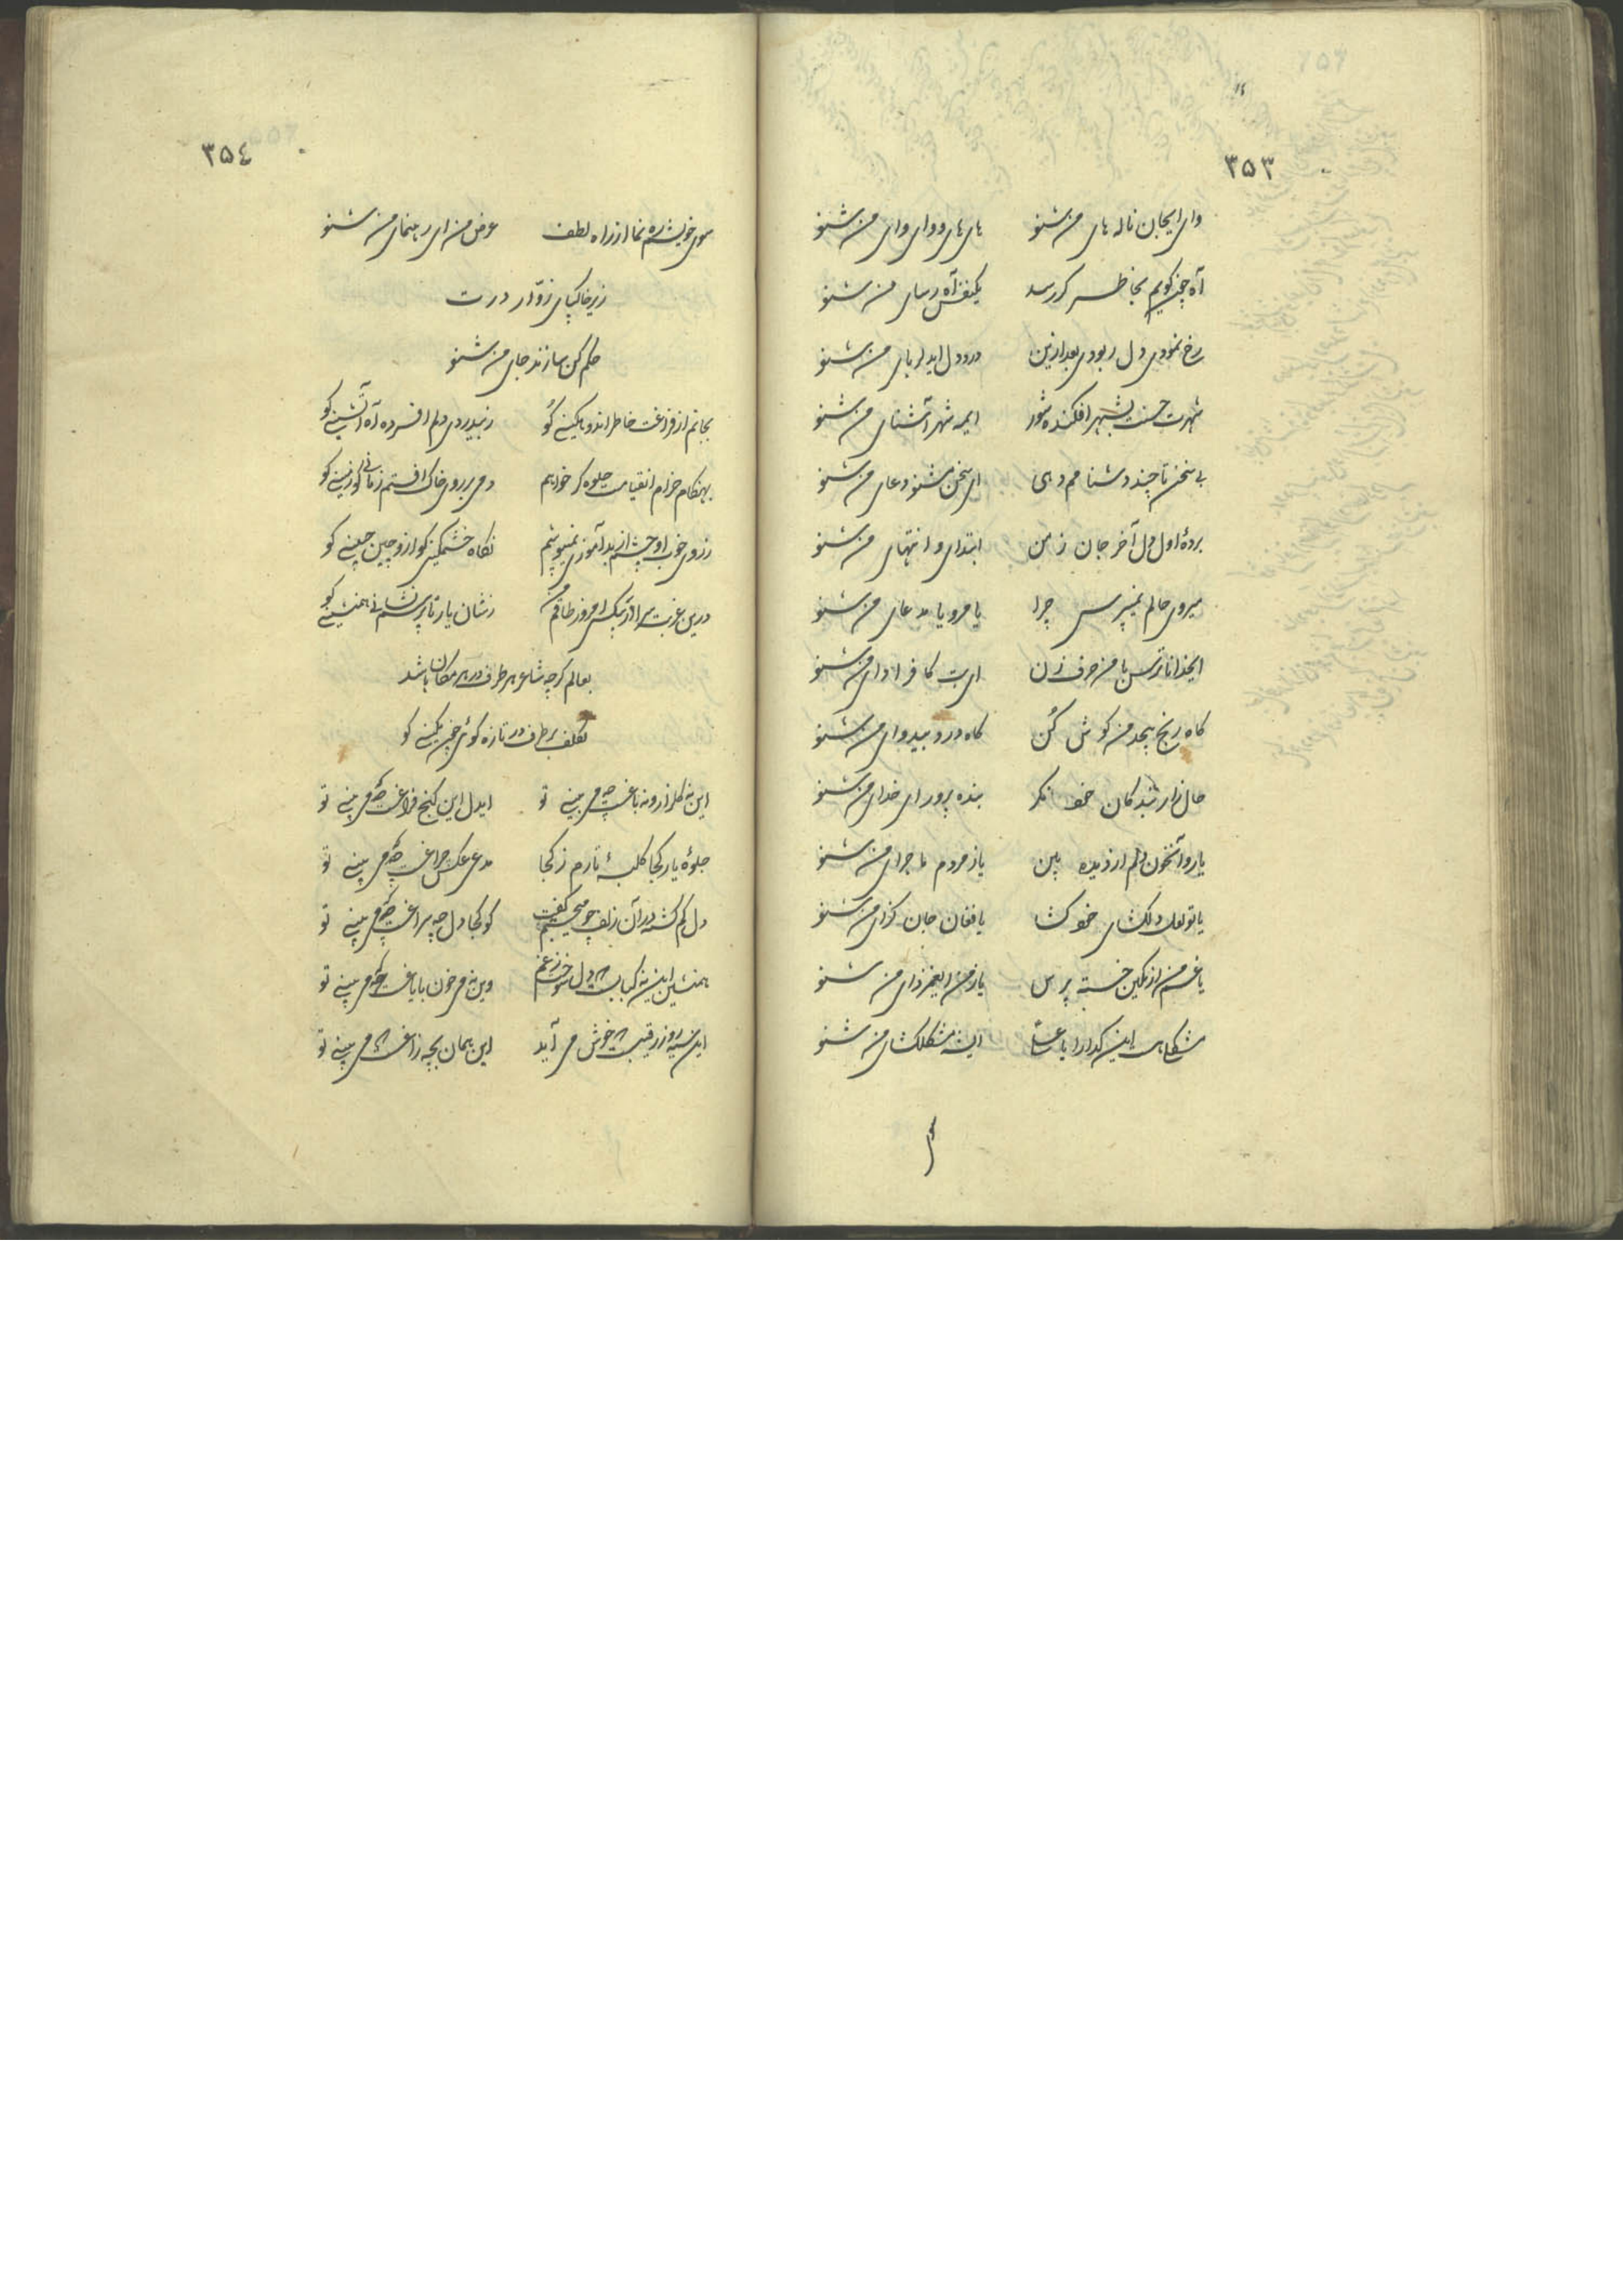 ۳۵۳
وای ایجان ناله های من شنو های های و وای وای من شنو
آه چون گویم بخاطر گر رسد یکنفس آه رسای من شنو
رخ نمودی دل ربودی بعد ازین درد دل ایدلربای من شنو
شهرت حسنت بشهر افکنده شور ایمه شهر آشنای من شنو
بی سخن تا چند دشنامم دهی ای سخن شنو دعای من شنو
بردهٔ اول دل آخر جان ز من ابتدای و انتهای من شنو
میروی حالم نمیپرسی چرا یا مرو یا مدعای من شنو
ایخدا ناترس با من حرف زن ای بت کافر ادای من شنو
گاه رنج بیحد من گوش کن گاه درد بیدوای من شنو
حال زار بندگان خود نگر بنده پرور ای خدای من شنو
یا روا خون دلم از دیده بین یا ز مردم ماجرای من شنو
یا تو لعل دلگشای خود گشا یا فغان جان گزای من شنو
یا غم من از غمگین خسته پرس یا ز من ای غمزدای من شنو
مشکلات این گدا را یا علی این مشکلگشای من شنو
۳۵٤
سوی خویشم ره نما از راه لطف عرض من ای رهنمای من شنو
زیر خاکپای زوّار درت
حکم کن سازند جای من شنو
بجانم از فراغت خاطر اندوهگینی کو ز بیدردی دلم افسرده آه آتشینی کو
بهنگام خرام انقیامت جلوه گر خواهم دمی بر روی خاک افتم زمانی کو زمینی کو
ز روی خوب او چشم از بد آموزی نمیپوشم نگاه خشمگینی کو از و چین جبینی کو
درین غربت سرا از بیکسی امروز طاقم من نشان یار تا پرسم نشانی همنشینی کو
بعالم گرچه شاعر هر طرف در هر مکان باشد
تکلف بر طرف در تازه گوئی چون یکینی کو
این نه گلزار و نه باغست چه می بینی تو ایدل این کنج فراغست چه می بینی تو
جلوهٔ یار کجا کلبهٔ تارم ز کجا مدعی عکس چراغست چه می بینی تو
دل گم گشته در آن زلف چو میجستم گفت کو کجا دل چه سراغست چه می بینی تو
همنشین این نه کبابست دل سوخت ز غم وین نه می خون بایاغست چه می بینی تو
این سیه روز رقیبت خوش می آید این همان بچه زاغست چه می بینی تو